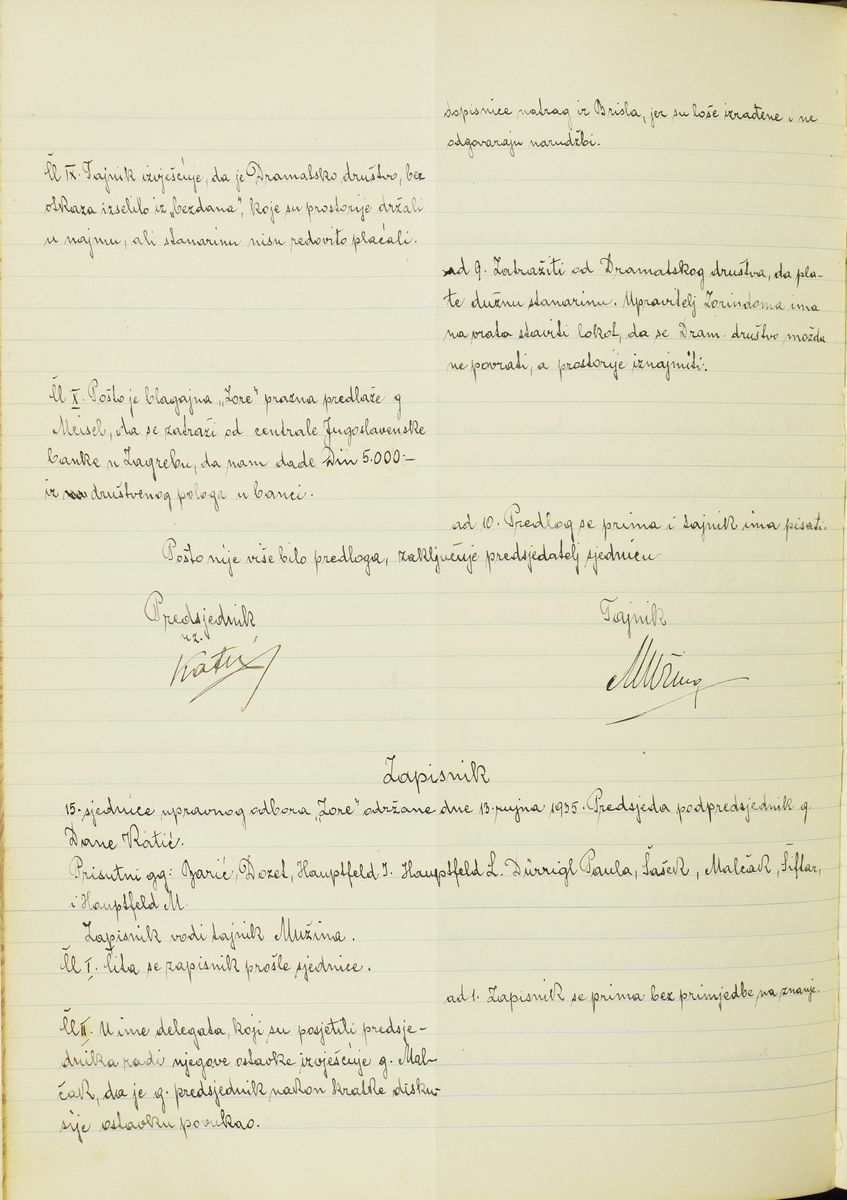 dopisnice natrag iz Brisla, jer su loše izrađene i ne
odgovaraju narudžbi.
Čl IX. Tajnik izvješćuje, da je Dramatsko društvo, bez
otkaza izselilo iz „bezdana", koje su prostorije držali
u najmu, ali stanarinu nisu redovito plaćali.
ad 9. Zatražiti od Dramatskog društva, da pla-
te dužnu stanarinu. Upravitelj Zorindoma ima
na vrata staviti lokot, da se Dram. društvo možda
ne povrati, a prostorije iznajmiti.
Čl X. Pošto je blagajna „Zore" prazna predlaže g
Meisel, da se zatraži od centrale Jugoslavenske
banke u Zagrebu, da nam dade Din 5.000.—
iz društvenog pologa u banci.
ad 10. Predlog se prima i tajnik ima pisati.
Pošto nije više bilo predloga, zaključuje predsjedatelj sjednicu
Predsjednik
uz.
Katić
Tajnik
Mužina
Zapisnik
15. sjednice upravnog odbora „Zore" održane dne 13. rujna 1935. Predsjeda podpredsjednik g.
Dane Katić.
Prisutni gg: Barić, Dozet, Hauptfeld J. Hauptfeld L. Dürrigl Paula, Šašek, Malčak, Šiftar,
i Hauptfeld M.
Zapisnik vodi tajnik Mužina.
Čl I. Čita se zapisnik prošle sjednice.
ad 1. Zapisnik se prima bez primjedbe na znanje.
Čl II. U ime delegata, koji su posjetili predsje-
dnika radi njegove ostavke izvješćuje g. Mal-
čak, da je g. predsjednik nakon kratke disku-
sije ostavku povukao.